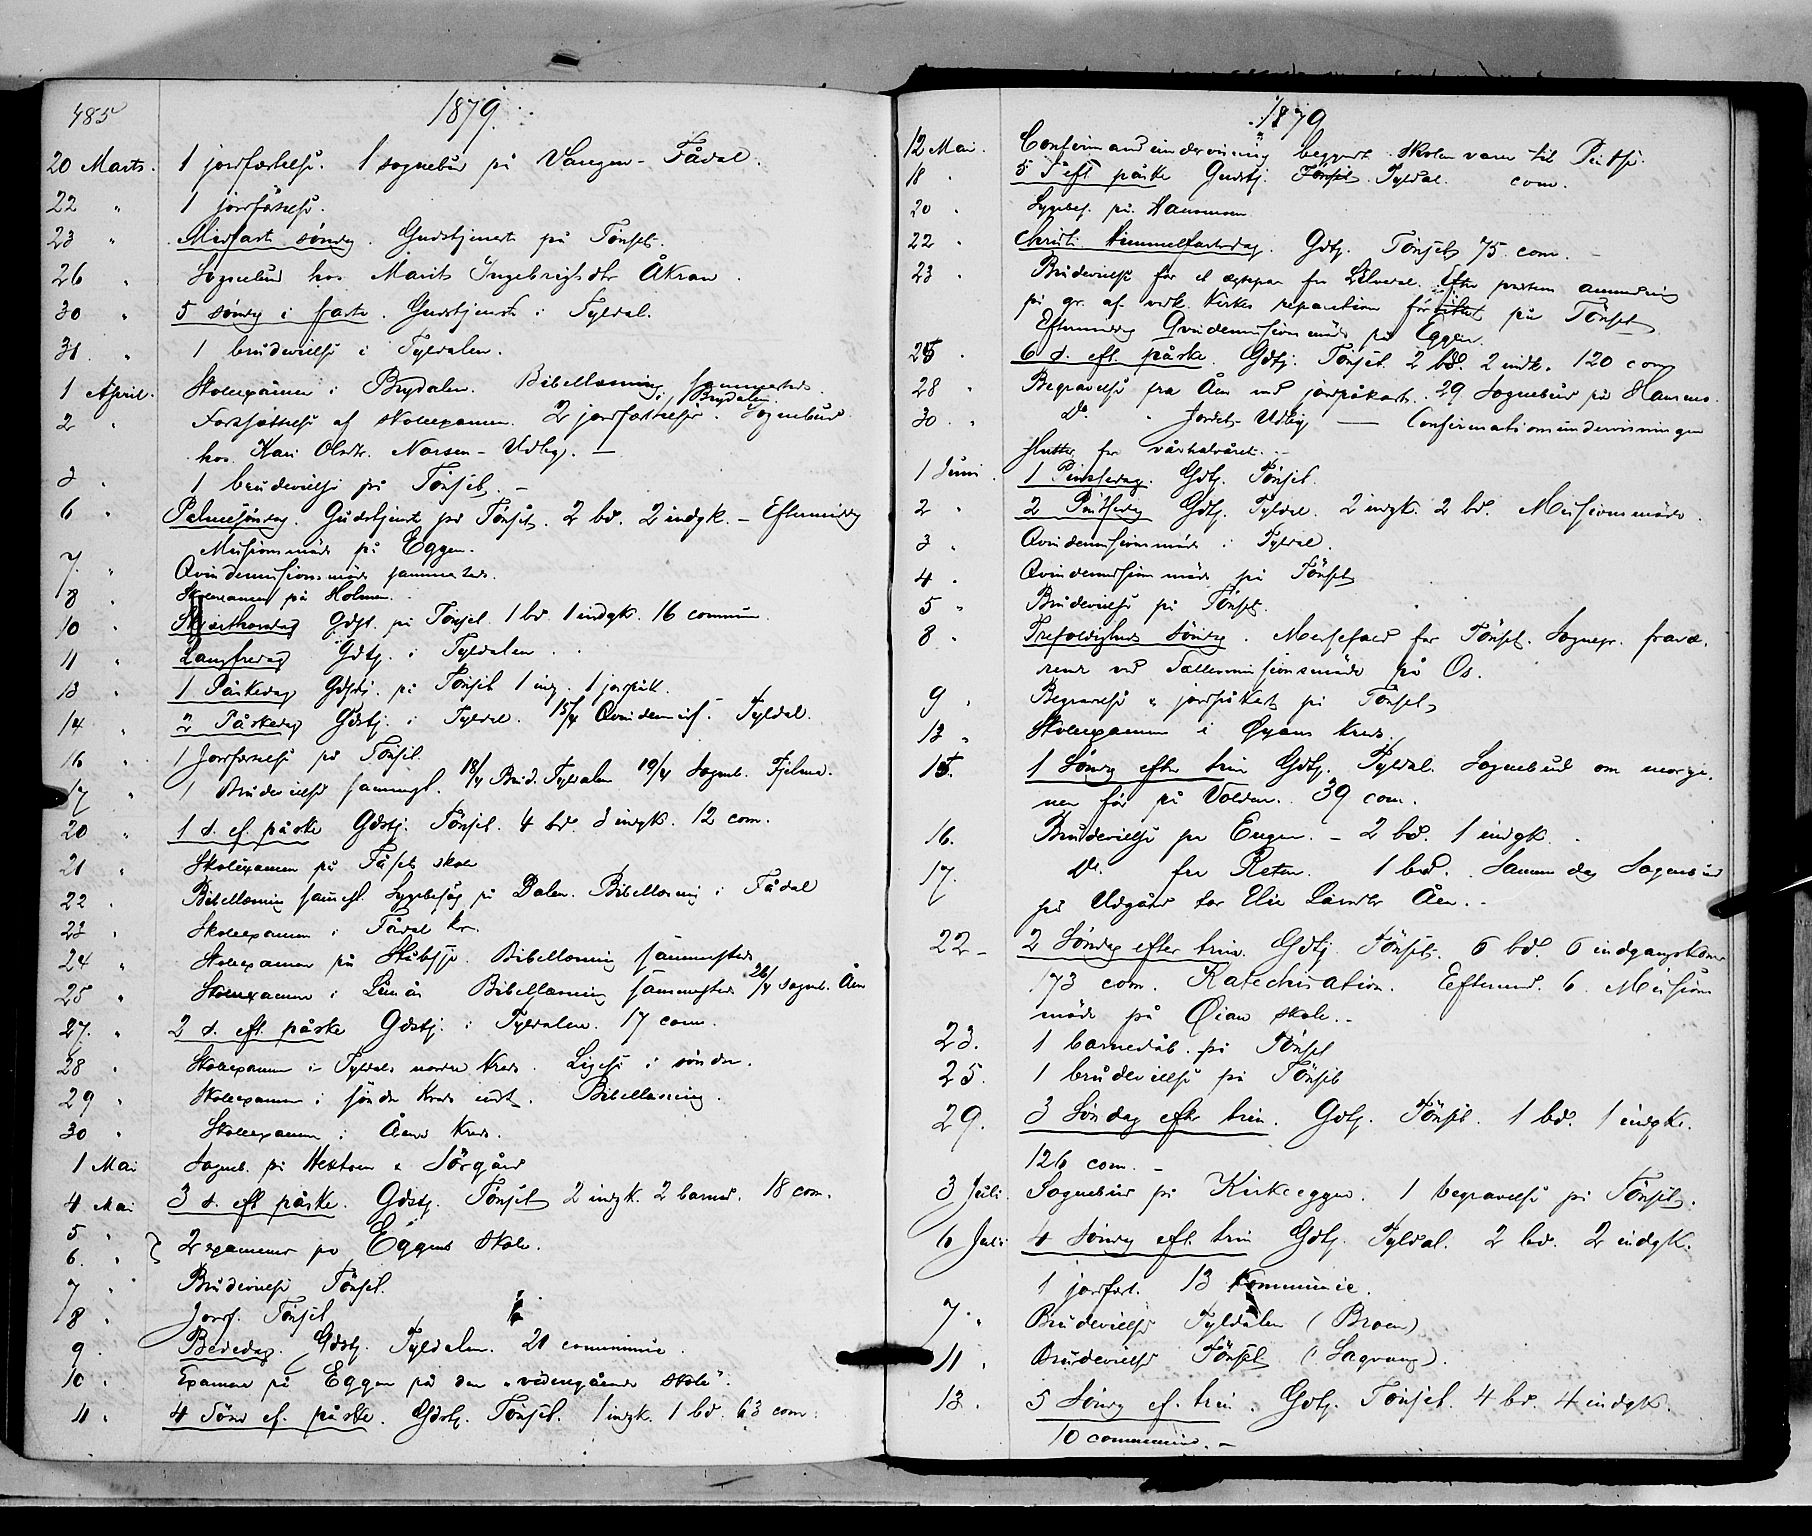 485
1879.
20 Marts. 1 jordfæstelse. 1 sognebud på Vangen - Fådal.
22 " 1 jordfæstelse.
23 " Midfaste søndag. Gudstjeneste på Tönset.
26 " Sognebud hos Marit Ingebrigtsdtr Åkran.
30 " 5 søndag i faste. Gudstjeneste i Tyldal.
31. " 1 brudevielse i Tyldalen.
1 April. Skoleexamen i Brydalen. Bibellæsning sammesteds
i Brydalen.
2 " Forsættelse af skoleexamen. 2 jordfæstelser. Sognebud
hos Kari Olsdtr. Narsen - Udlig. —
3 " 1 brudevielse på Tönset. -
6 " Palmesöndag. Gudstjeneste på Tönset. 2 bd. 2 indgk. - Eftermiddag
Missionsmöde på Eggen.
7. " Qvindemissionsmöde sammesteds.
8 " Skoleexamen på Holmen.
10 " Skjærthorsdag Gdstj. på Tönset. 1 bd. 1 indgk. 16 commun.
11 " Langfredag Gdtj. i Tyldalen.
13 " 1 Påskedag Gdstj. på Tönset 1 ind. 1 jordpåk.
14 " 2 Påskedag Gdstj. i Tyldal. 15/4 Qvindemis. Tyldal.
16 " 1 Jordfæstelse på Tönset.
17 " 1 Brudevielse sammest. 18/4 Brud. Tyldalen 19/4 Sogneb. Fjelme.
20 " 1 s. ef. påske Gdstj. Tönset. 4 bd. 3 indgk. 12 com.
21 " Skoleexamen på Fåset skole
22 " Bibellæsning sammest. Sygebesøg på Dalen. Bibellæsning i Fådal
23 " Skoleexamen i Fådal kr.
24 " Skoleexamen på Bibellæsning sammesteds
25 " Skoleexamen i Bibellæsning sammesteds 26/4 Sogneb. Åen
27. " 2 s. eft. påske Gdstj. i Tyldalen. 17 com.
28 " Skoleexamen i Tyldals nordre kreds. Ligeså i søndre.
29 " Skoleexamen i söndre kreds Bibellæsning.
30 " Skoleexamen i Åens kreds.
1 Mai Sogneb. på & Sörgård
4 Mai 3 s. eft påske. Gdstj. Tönset 2 indgk. 2 barned. 18 com.
5 "
6. " } 2 examener på Eggens skole.
7 " Brudevielse Tönset.
8 " Jordf. Tönset
9 . Bededag. Gdstj. Tyldalen. 21 communic.
10 . Examen på Eggen på den "videregående skole".
11 . 4 Sönd ef. påske. Gdstj. Tönset. 1 indgk. 1 bd. 63 com.
1879
12 Mai. Confirmandundervisning begyndt. Skolen varer til Pintse.
18 . 5 S. eft påske Gudstj. Tönset. Tyldal. com.
20 . Sygebes. på Hansmoen
22 . Christi himmelfartsdag. Gdtj. Tönset 75 com. -
23 . Brudevielse for et ægtepar fra Lilleelvd. Efter pastors anmodning
på gr. af vedk. kirkes reparation på Tönset
Eftermiddag Qvindemissionsmöde på Eggen.
25 . 6 s. eft. påske. Gdtj. Tönset. 2 bd. 2 indk. 120 com
28 " Begravelse fra Åen med jordpåkast. 29 Sognebud på Hansmo.
30 . " Do. " Jordet - Udlig — Confirmationsundervisningen
slutter for vårhalvåret. -
1 Juni . 1 Pintsedag. Gdtj. Tönset.
2 " 2 Pintsedag Gdtj. Tyldal. 2 indgk. 2 bd. Missionsmöde.
3 . Qvindemissionsmöde i Tyldal.
4 . Qvindemission möde på Tönset
5 " Brudevielse på Tönset.
8 . Trefoldigheds Söndag. Messefald for Tönset. Sognepr. fravæ-
rende ved Fællesmissionsmöde på Os.
9 . Begravelse " jordpåkast på Tönset
13 " Skoleexamen i Øyans kreds.
15. 1 Söndag efter trin Gdtj. Tyldal. Sognebud om morge-
nen för på Volden. 39 com.
16. Brudevielse på Engen. - 2 bd. 1 indgk.
17. Do. fra Reten. 1 bd. Samme dag Sognebud
på Udgård for Elie Åen. -
22 - 2 Söndag efter trin. Gdtj. Tönset. 6 bd. 6 indgangskoner
173 com. Katechisation. Eftermd. 6. Mission
möde på Øian skole. -
23. 1 barnedåb. på Tönset
25. 1 brudevielse på Tönset
29. 3 Söndag efter trin. Gdtj. Tönset. 1 bd. 1 indgk.
126 com. -
3 Juli. Sognebud på Kirkeeggen. 1 begravelse på Tönset.
6 Juli 4 Söndag eft. trin Gdtj. Tyldal. 2 bd. 2 indgk.
1 jordfæst. 13 kommunic.
7. " Brudevielse Tyldalen (Broen)
11 . Brudevielse Tönset (Sagvang).
13 . 5 Söndag ef. trin. Gdtj. Tönset. 4 bd. 4 indgk.
10 communic. -